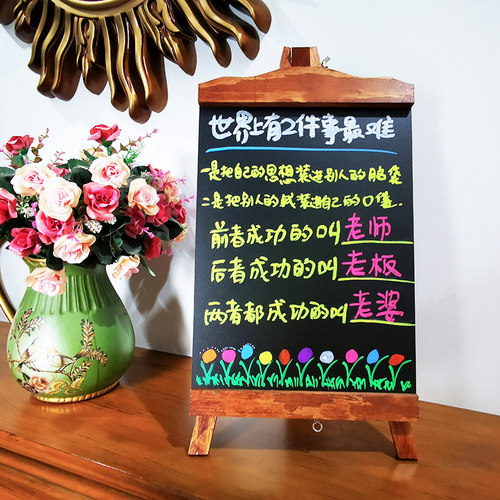 世界上有2件事最难
一是把自己的思想装进别人的脑袋
二是把别人的钱装进自己的口袋..
前者成功的叫老师
后者成功的叫老板
两者都成功的叫老婆